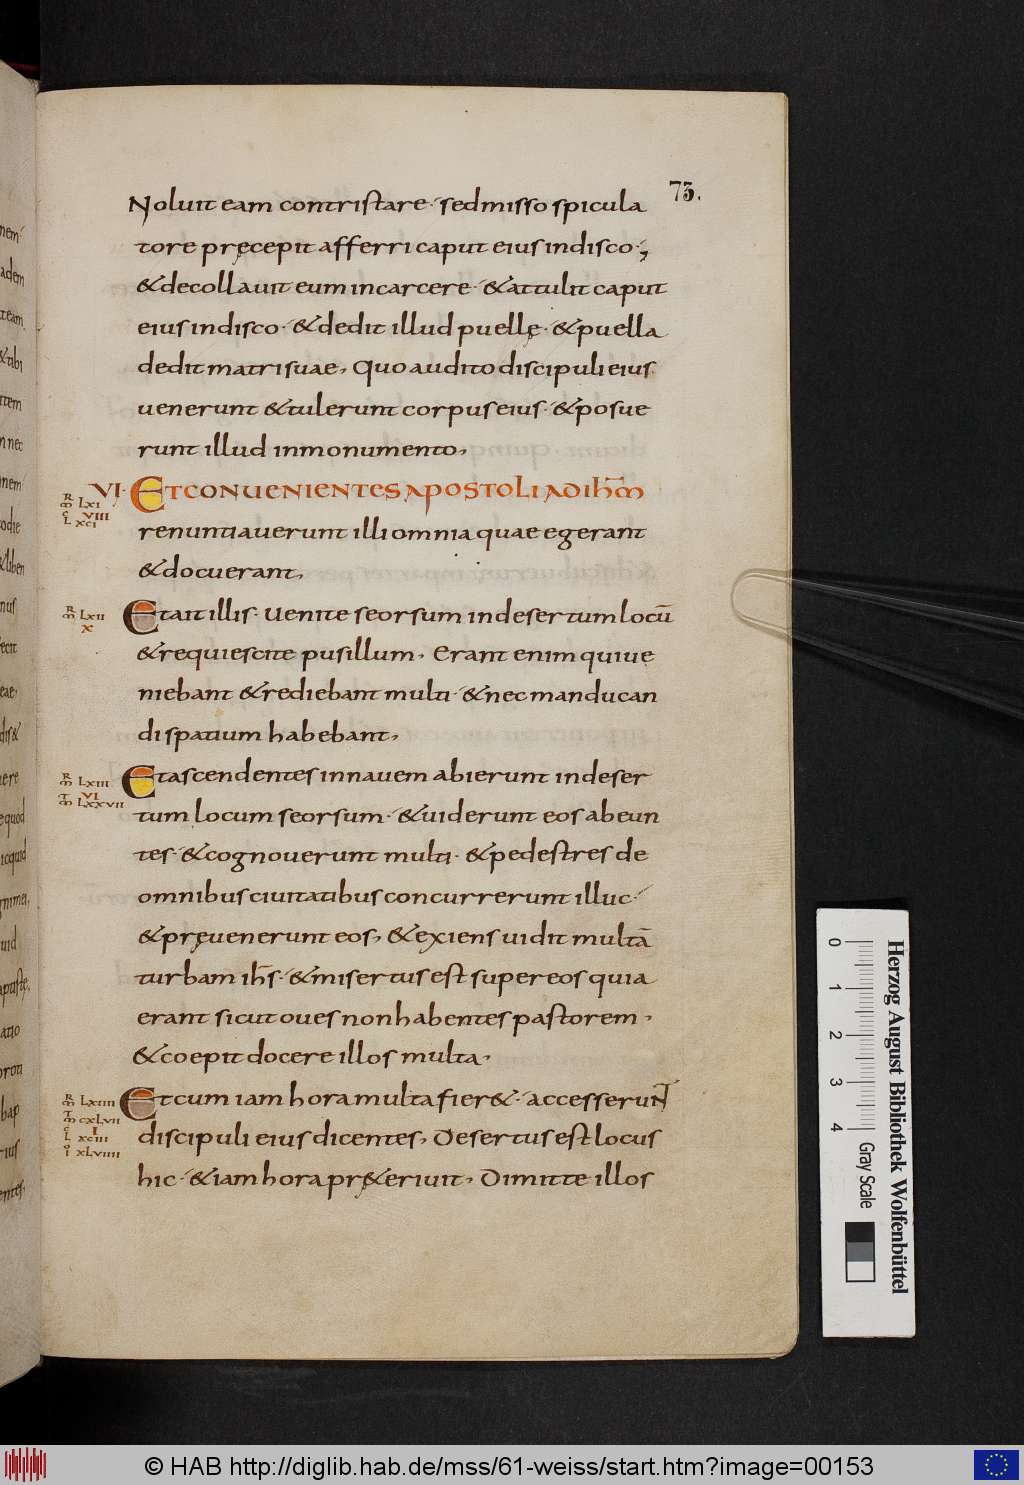 73.
Noluit eam contristare· sed misso spicula
tore pręcepit afferri caput eius in disco·,
& decollauit eum in carcere· & attulit caput
eius in disco· & dedit illud puellę· & puella
dedit matri suae, Quo audito discipuli eius
uenerunt & tulerunt corpus eius· & posue
runt illud in monumento,
VI· ET CONUENIENTES APOSTOLI AD IHM̅
renuntiauerunt illi omnia quae egerant
& docuerant,
Et ait illis· Uenite seorsum in desertum locū
& requiescite pusillum, Erant enim qui ue
niebant & rediebant multi· & nec manducan
di spatium habebant,
Et ascendentes in nauem abierunt in deser
tum locum seorsum· & uiderunt eos abeun
tes· & cognouerunt multi· & pedestres de
omnibus ciuitatibus concurrerunt illuc·
& pręuenerunt eos, & exiens uidit multā
turbam ih̅s· & misertus est super eos quia
erant sicut oues non habentes pastorem,
& coepit docere illos multa,
Et cum iam hora multa fier&· accesserunT
discipuli eius dicentes, Desertus est locus
hic· & iam hora pręt&eriuit, Dimitte illos
LXI
VIII
L XCI
LXII
X
LXIII
VI
LXXVII
LXIIII
CXLVII
I
L XCIII
XLVIIII
0 1 2 3 4
Herzog August Bibliothek Wolfenbüttel
Gray Scale
© HAB http://diglib.hab.de/mss/61-weiss/start.htm?image=00153